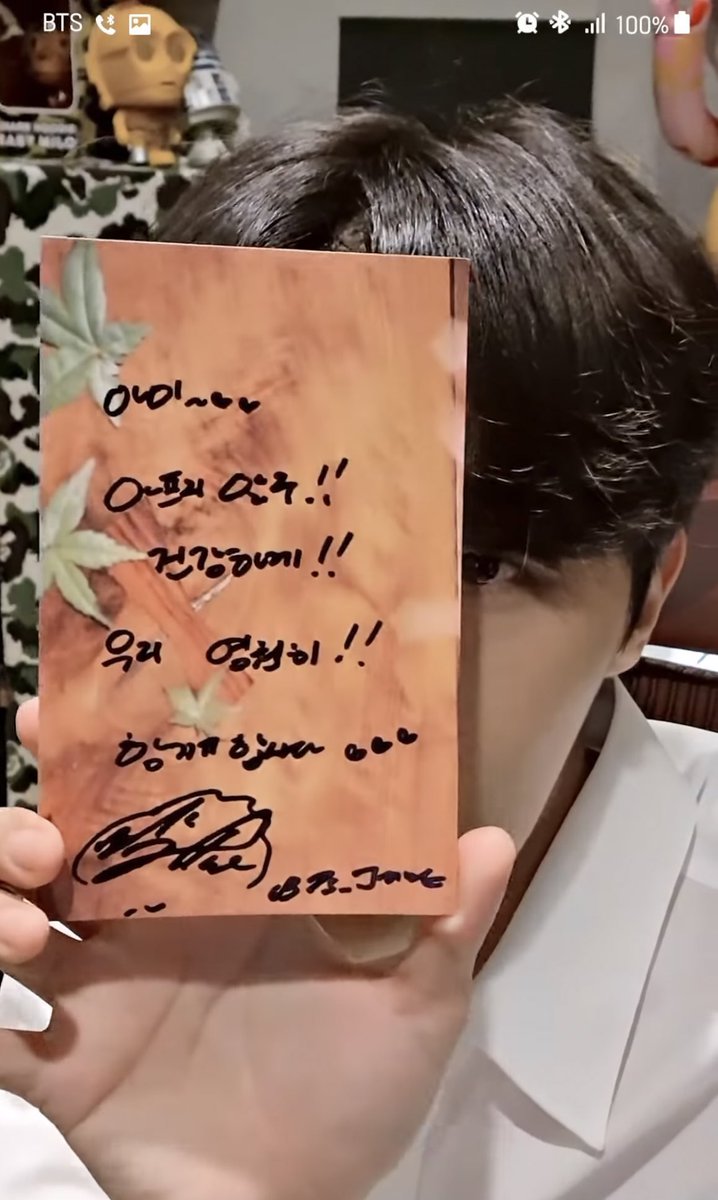 BTS 100%
MILO
아미~♥♥
아프지 않구!!
건강하게!!
우리 영원히!!
함께합시다 ♥♥♥